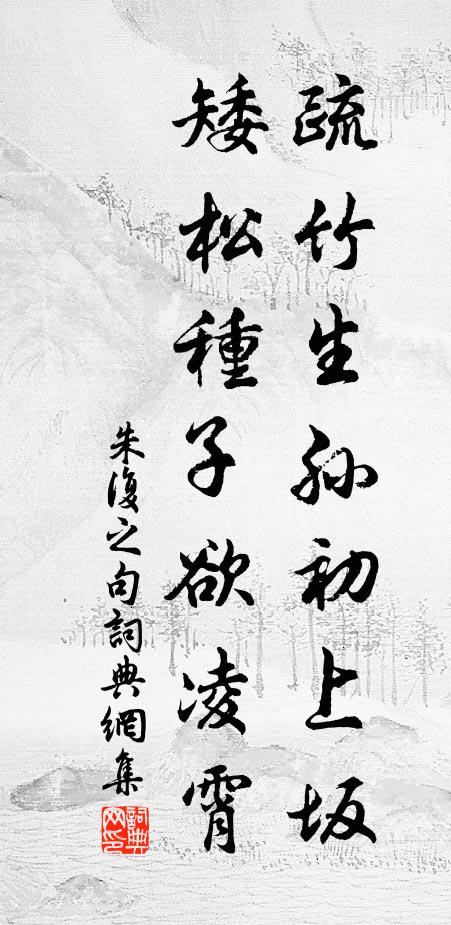 疏竹生孙初上坂
矮松種子欲凌霄
朱復之句詞典網集
詞典网印